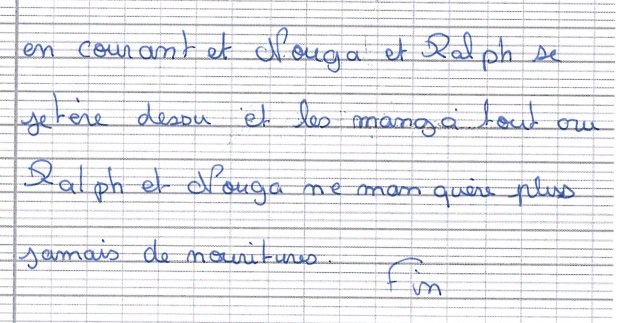 en courant et Nouga et Ralph se
jetère dessu et les mangà tout cru
Ralph et Nouga ne man quère plus
jamais de nouritures.
Fin